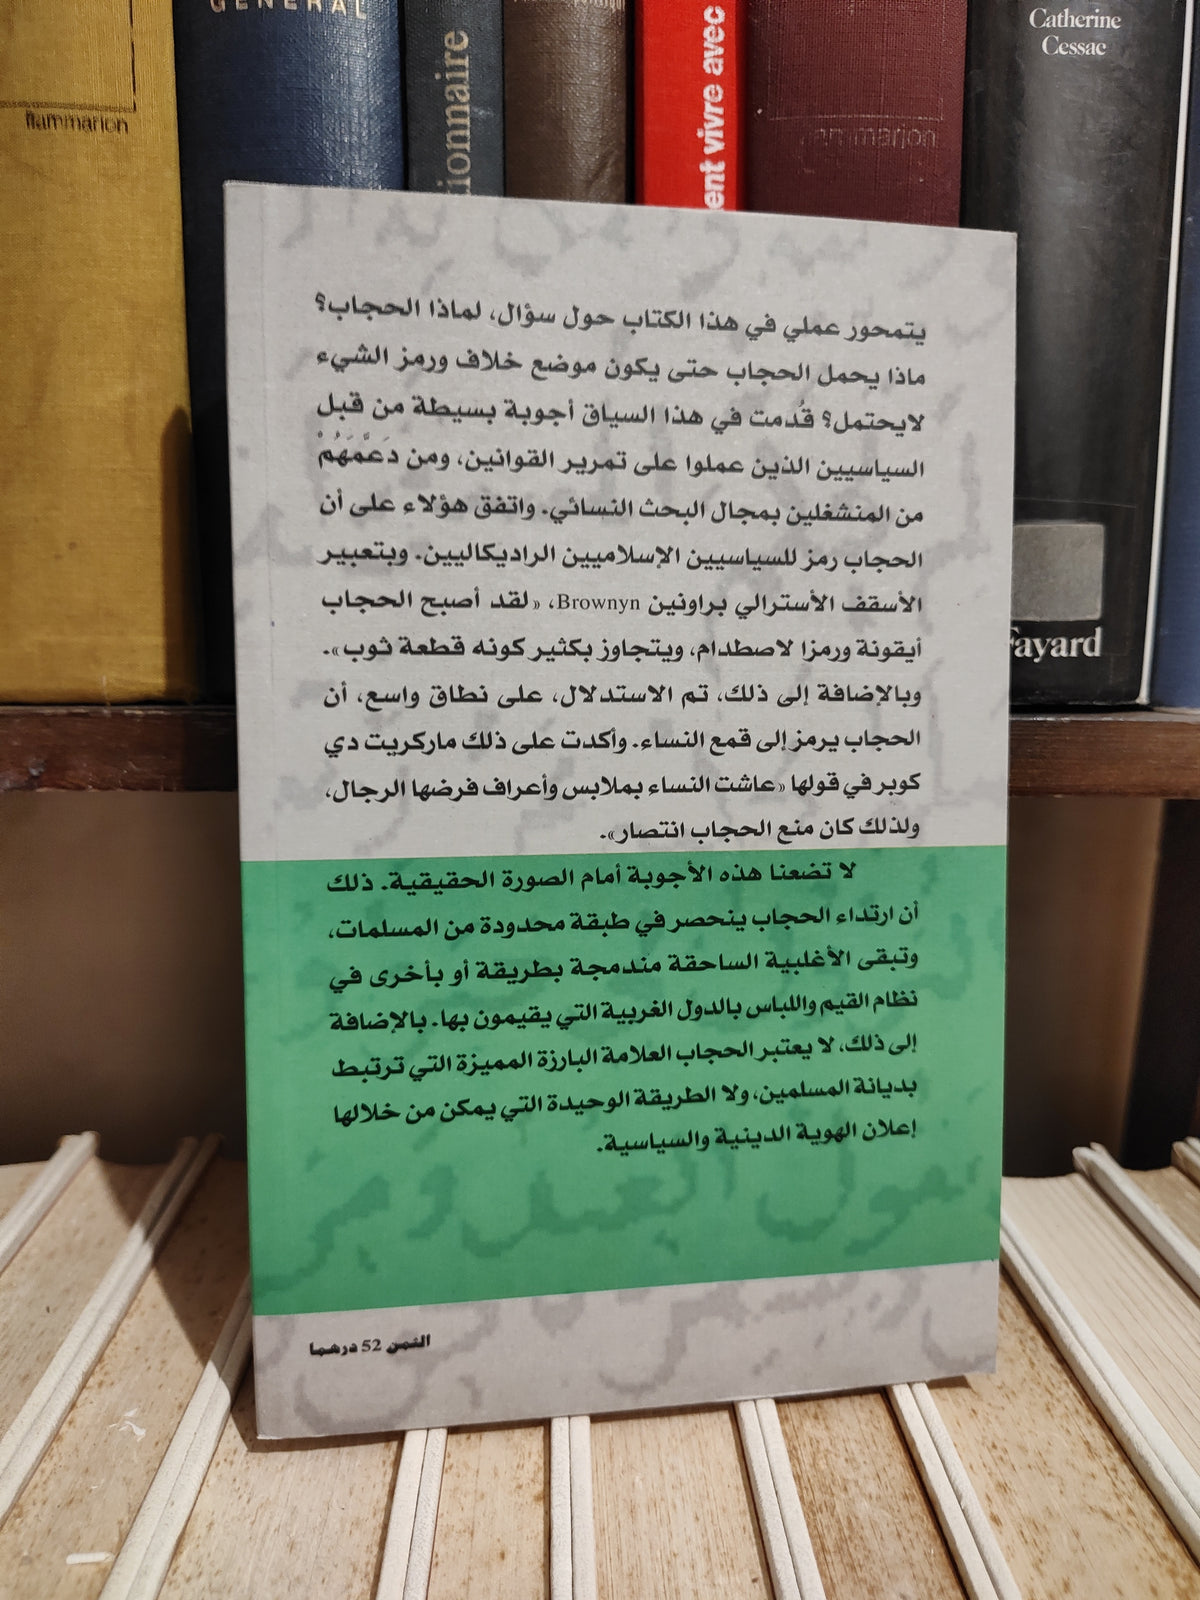 GENERAL
flammarion
ionnaire
ent vivre avec
Catherine
Cessac
Fayard
يتمحور عملي في هذا الكتاب حول سؤال، لماذا الحجاب؟
ماذا يحمل الحجاب حتى يكون موضع خلاف ورمز الشيء
لايحتمل؟ قُدمت في هذا السياق أجوبة بسيطة من قبل
السياسيين الذين عملوا على تمرير القوانين، ومن دَعَّمَهُمْ
من المنشغلين بمجال البحث النسائي. واتفق هؤلاء على أن
الحجاب رمز للسياسيين الإسلاميين الراديكاليين. وبتعبير
الأسقف الأسترالي براونين Brownyn، «لقد أصبح الحجاب
أيقونة ورمزا لاصطدام، ويتجاوز بكثير كونه قطعة ثوب».
وبالإضافة إلى ذلك، تم الاستدلال، على نطاق واسع، أن
الحجاب يرمز إلى قمع النساء. وأكدت على ذلك ماركريت دي
كوبر في قولها «عاشت النساء بملابس وأعراف فرضها الرجال،
ولذلك كان منع الحجاب انتصار».
لا تضعنا هذه الأجوبة أمام الصورة الحقيقية. ذلك
أن ارتداء الحجاب ينحصر في طبقة محدودة من المسلمات،
وتبقى الأغلبية الساحقة مندمجة بطريقة أو بأخرى في
نظام القيم واللباس بالدول الغربية التي يقيمون بها. بالإضافة
إلى ذلك، لا يعتبر الحجاب العلامة البارزة المميزة التي ترتبط
بديانة المسلمين، ولا الطريقة الوحيدة التي يمكن من خلالها
إعلان الهوية الدينية والسياسية.
الثمن 52 درهما